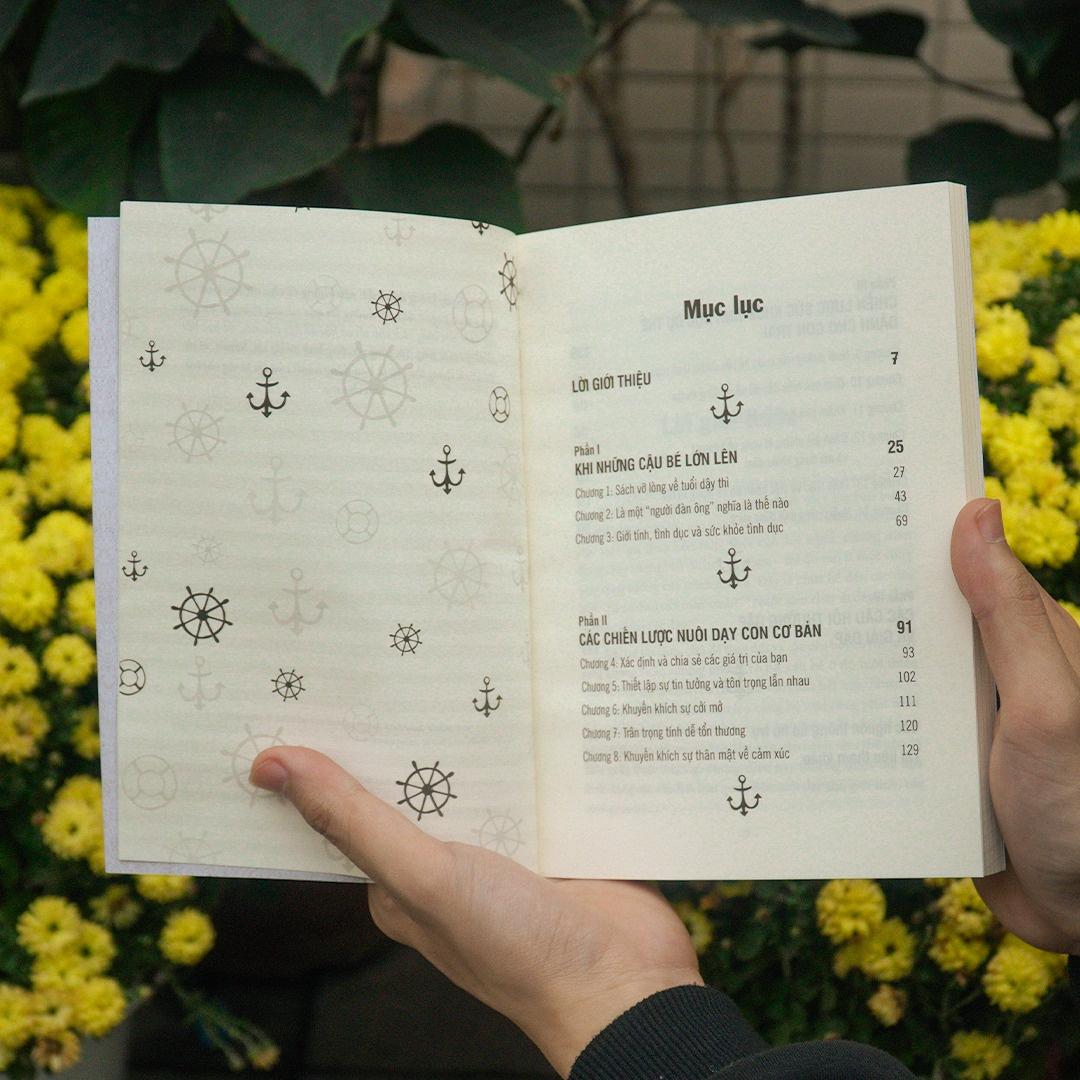 Mục lục
LỜI GIỚI THIỆU 7
Phần I
KHI NHỮNG CẬU BÉ LỚN LÊN 25
Chương 1: Sách vỡ lòng về tuổi dậy thì 27
Chương 2: Là một "người đàn ông" nghĩa là thế nào 43
Chương 3: Giới tính, tình dục và sức khỏe tình dục 69
Phần II
CÁC CHIẾN LƯỢC NUÔI DẠY CON CƠ BẢN 91
Chương 4: Xác định và chia sẻ các giá trị của bạn 93
Chương 5: Thiết lập sự tin tưởng và tôn trọng lẫn nhau 102
Chương 6: Khuyến khích sự cởi mở 111
Chương 7: Trân trọng tính dễ tổn thương 120
Chương 8: Khuyến khích sự thân mật về cảm xúc 129